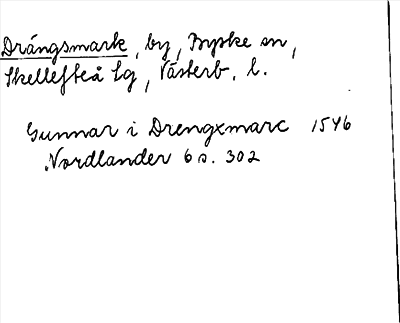 Drängsmark, by, Byske sn,
Skellefteå tg, Västerb. l.
Gunnar i Drengxmarc 1546
Nordlander 6 s. 302